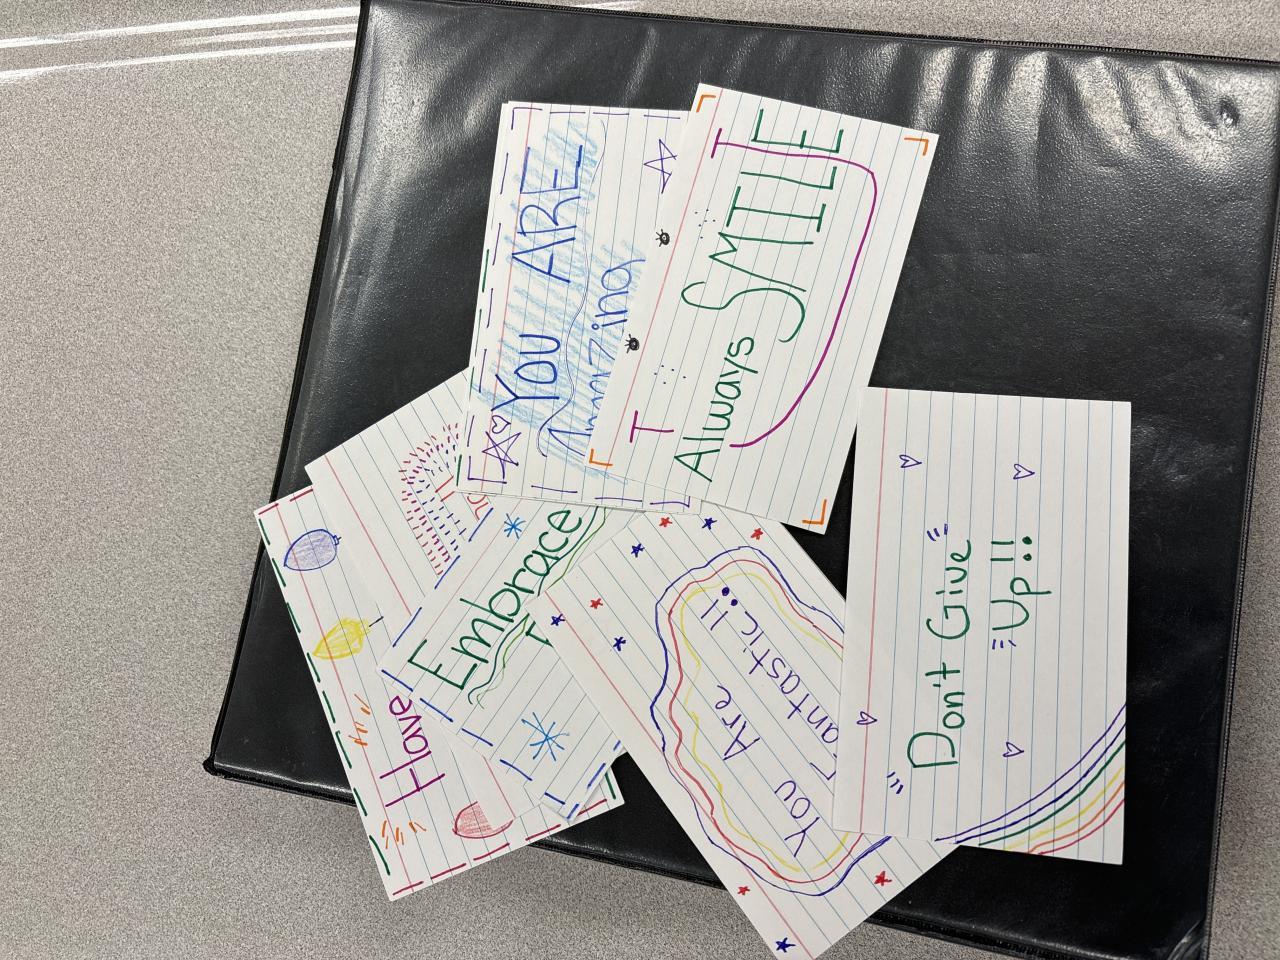 You ARE
Amazing
Always SMILE
Embrace
Have
You Are
Fantastic!!
Don't Give
Up!!